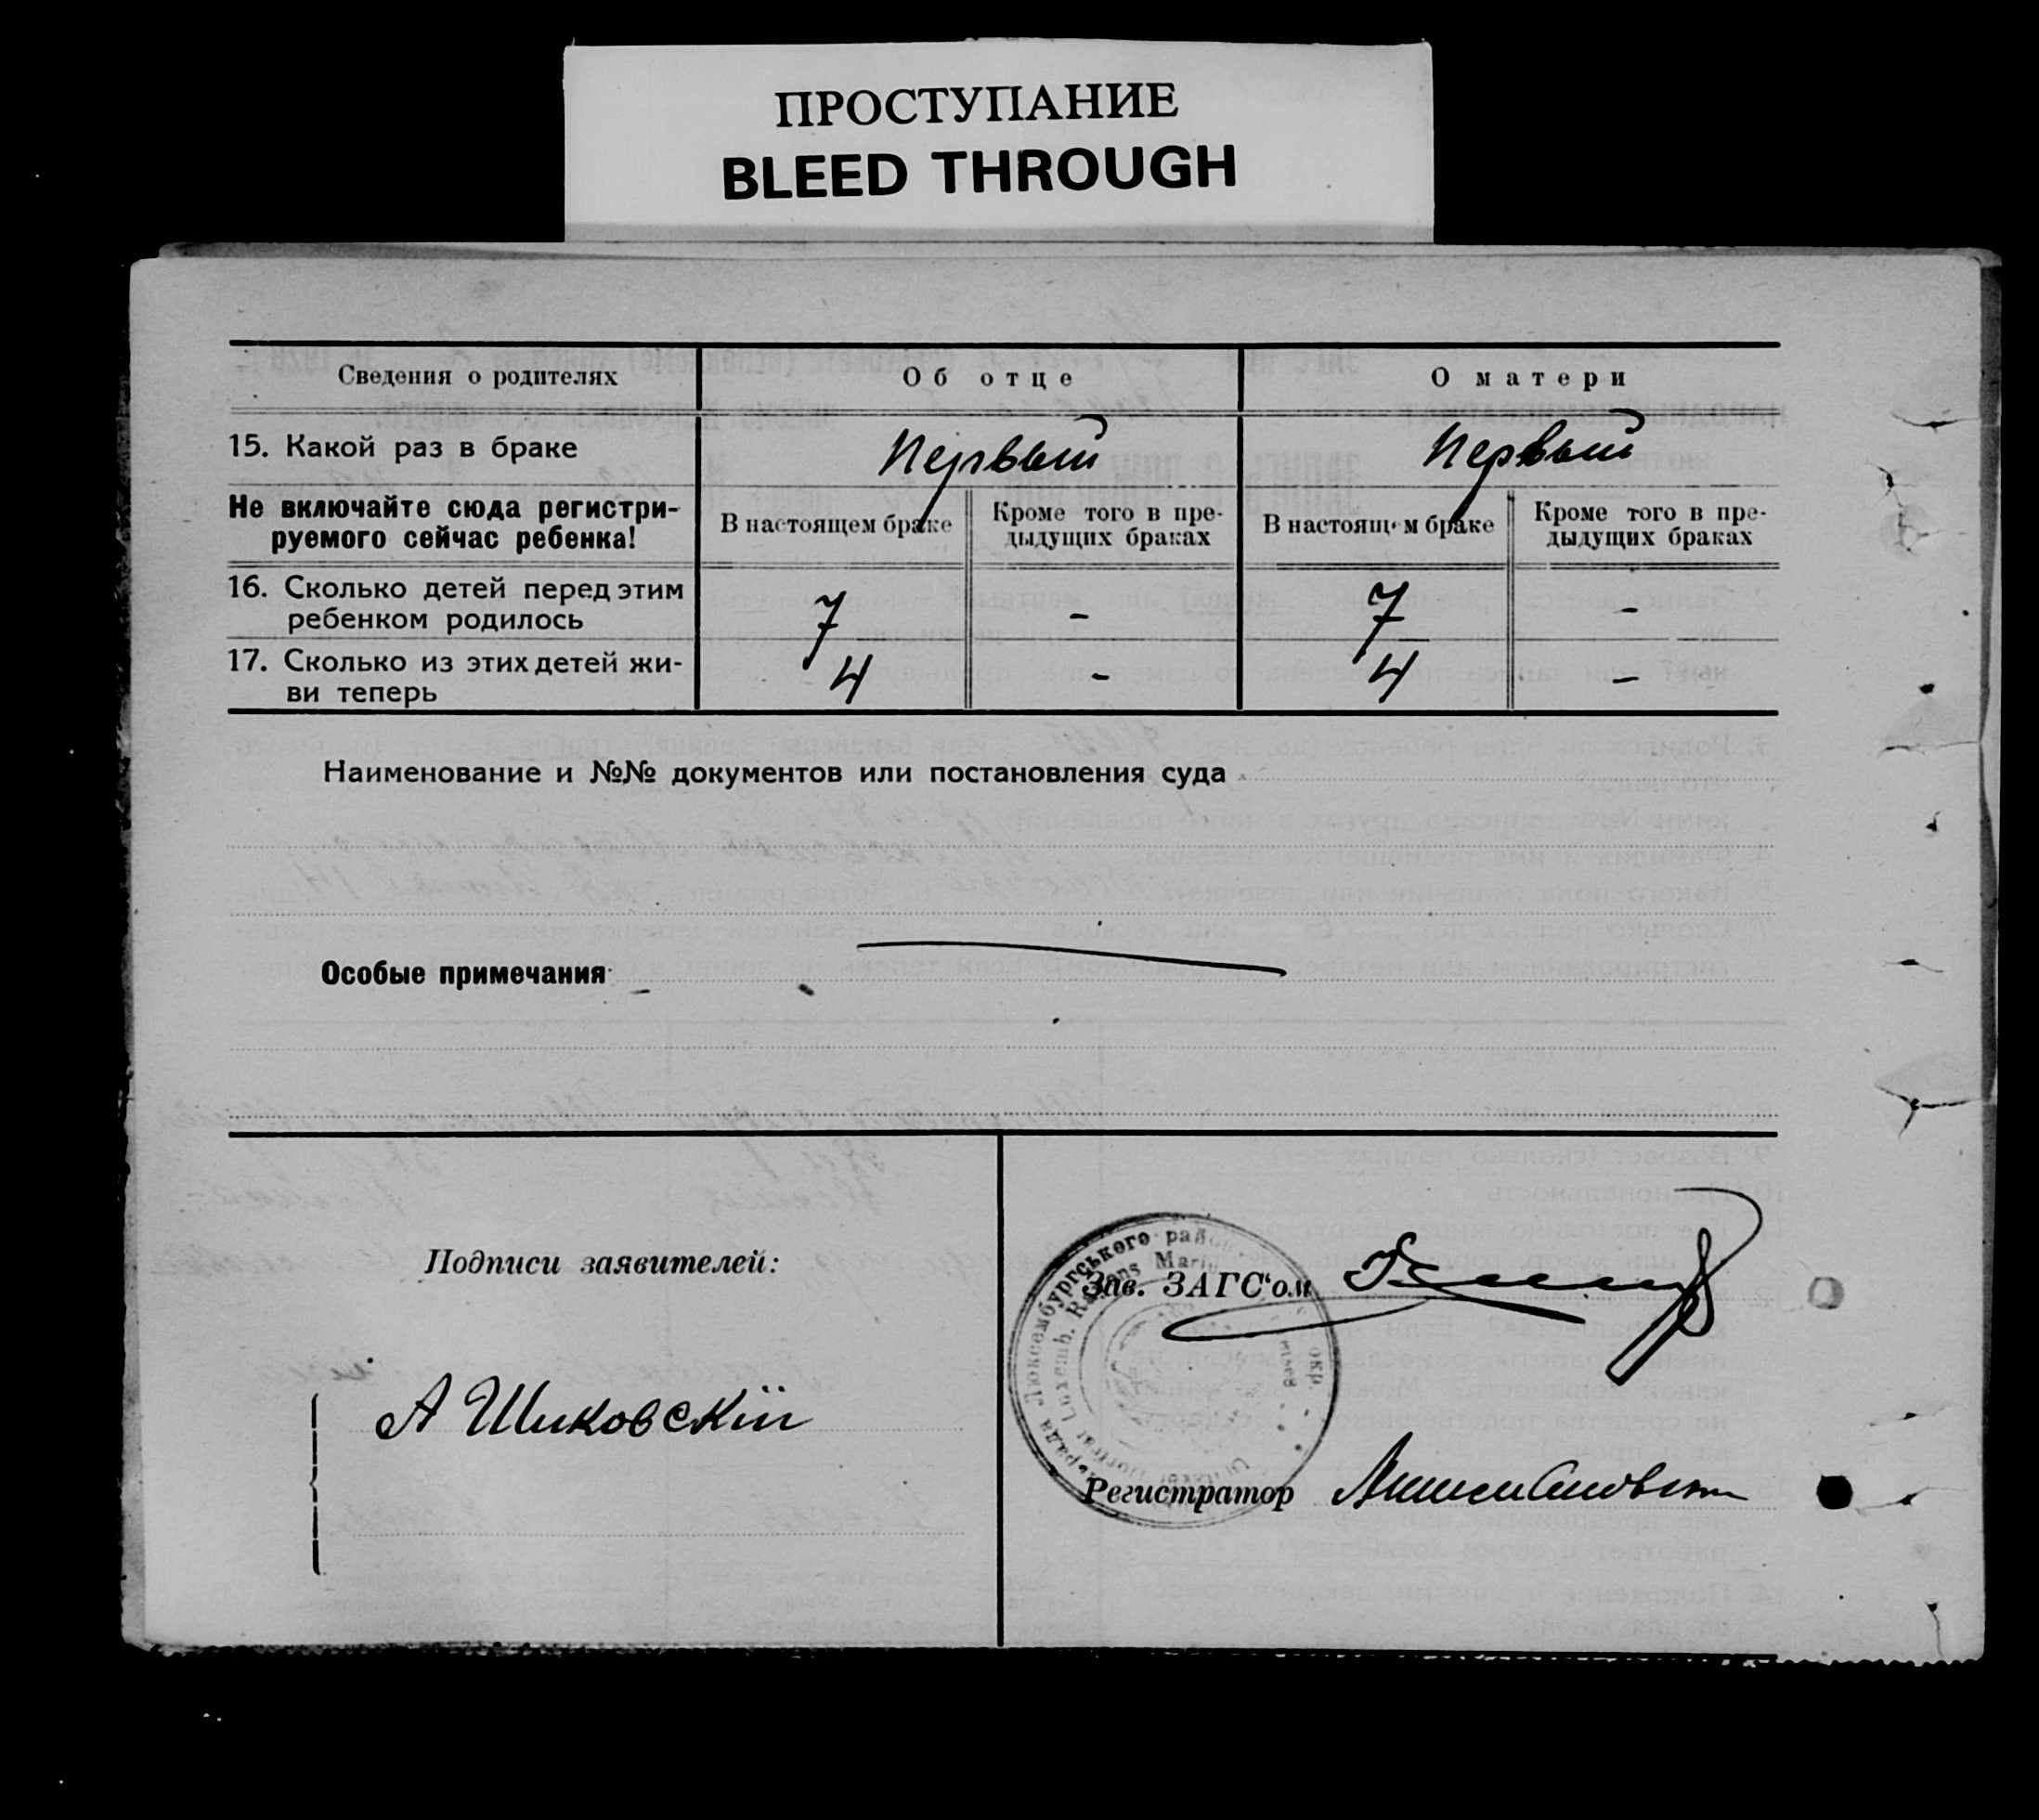 ПРОСТУПАНИЕ
BLEED THROUGH
Сведения о родителях Об отце О матери
15. Какой раз в браке Первый Первый
Не включайте сюда регистри-
руемого сейчас ребенка!
В настоящем браке
Кроме того в пре-
дыдущих браках
В настоящем браке
Кроме того в пре-
дыдущих браках
16. Сколько детей перед этим
ребенком родилось 7 - 7 -
17. Сколько из этих детей жи-
ви теперь 4 - 4 -
Наименование и №№ документов или постановления суда
Особые примечания
Подписи заявителей:
А Шиковскій
Зав. ЗАГС‘ом
Регистратор
Люксембургського
Luxemb. Rayons Mariu